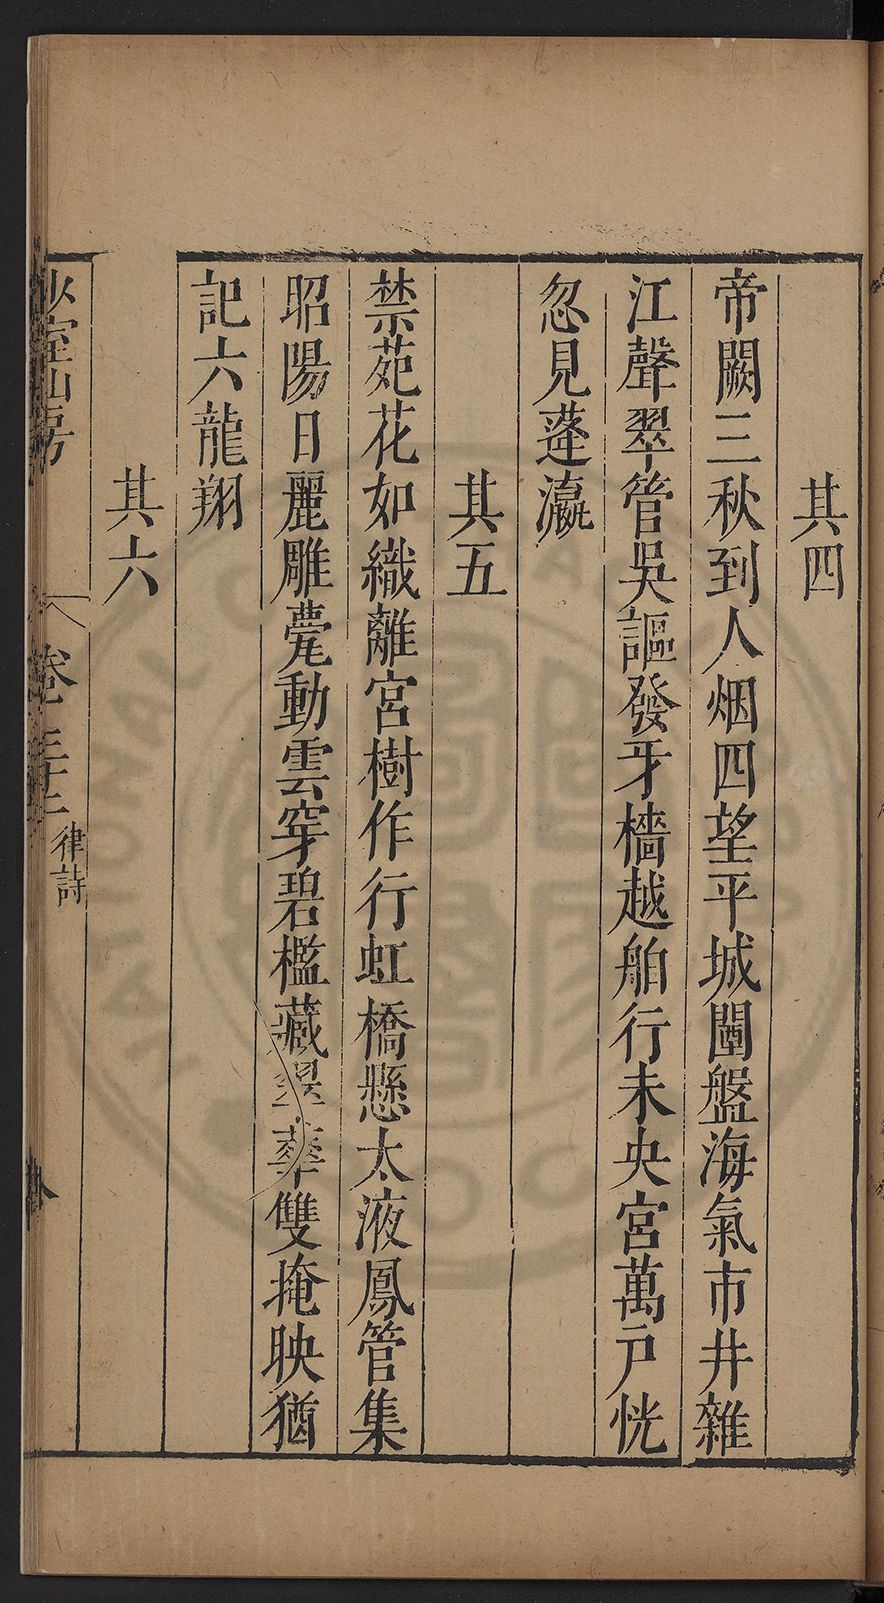 其四
帝闕三秋到人烟四望平城闉盤海氣市井雜
江聲翠管吳謳發牙檣越舶行未央宮萬戶恍
忽見蓬瀛
其五
禁苑花如織離宮樹作行虹橋懸太液鳳管集
昭陽日麗雕甍動雲穿碧檻藏翠華雙掩映猶
記六龍翔
其六
室山房
卷三十二 律詩